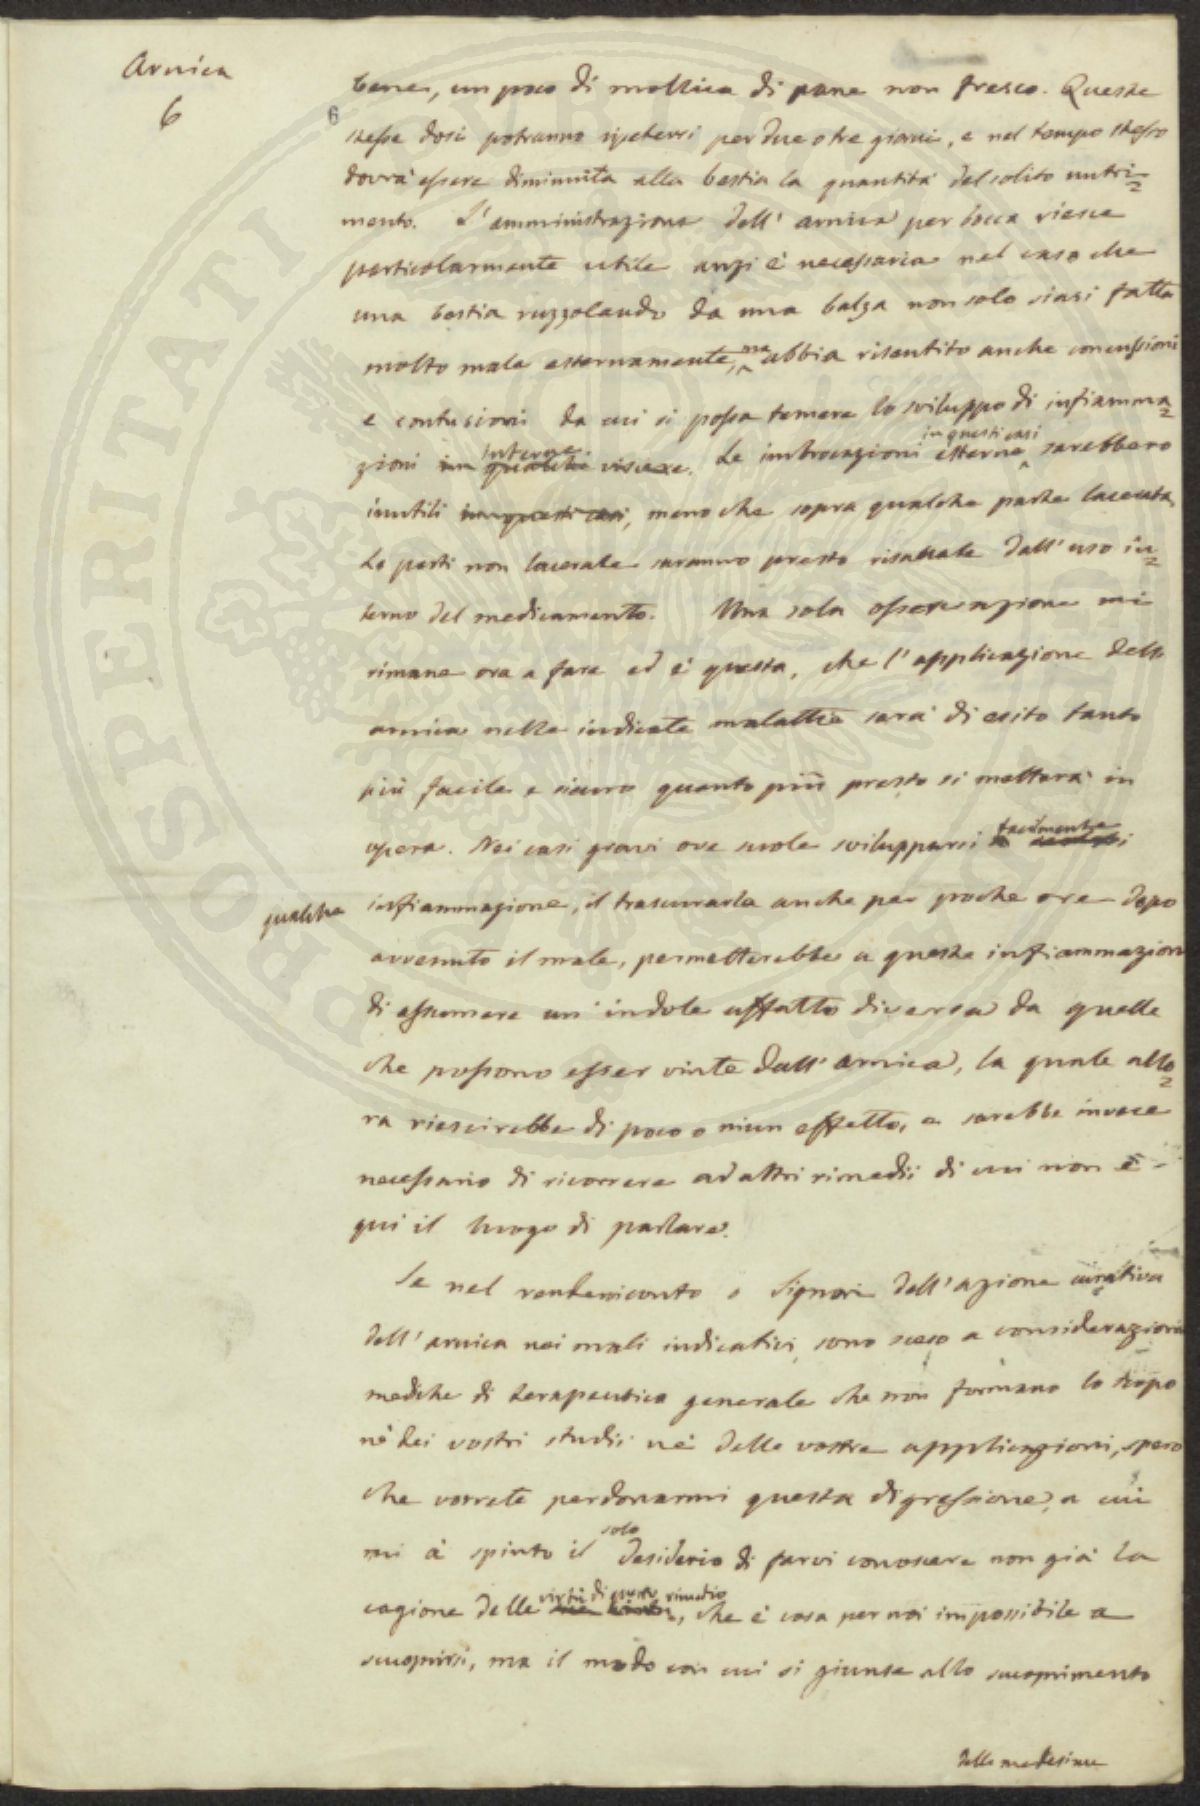 Arnica
6
6
bene, un poco di mollica di pane non fresco. Queste
stesse dosi potranno ripetersi per due o tre giorni, e nel tempo stesso
dovrà essere diminuita alla bestia la quantità del solito nutri=
mento. L'amministrazione dell'arnica per bocca riesce
particolarmente utile anzi è necessaria nel caso che
una bestia ruzzolando da una balza non solo siasi fatta
molto male esternamente, ma abbia risentito anche concussioni
e contusioni da cui si possa temere lo sviluppo di infiamma=
zioni in qualche interne viscere. Le imbrocazioni esterne in questi casi sarebbero
inutili in questi casi, meno che sopra qualche parte lacerata.
Le parti non lacerate saranno presto risanate dall'uso in=
terno del medicamento. Una sola osservazione mi
rimane ora a fare ed è questa, che l'applicazione dell'
arnica nelle indicate malattie sarà di esito tanto
più facile e sicuro quanto più presto si metterà in
opera. Nei casi gravi ove suole svilupparsi facilmente
qualche infiammazione, il trascurarla anche per poche ore dopo
avvenuto il male, permetterebbe a queste infiammazioni
di assumere un'indole affatto diversa da quelle
che possono esser vinte dall'arnica, la quale allo=
ra riescirebbe di poco o niun effetto, e sarebbe invece
necessario di ricorrere ad altri rimedii di cui non è
qui il luogo di parlare.
Se nel rendervi conto o Signori dell'azione curativa
dell'arnica nei mali indicativi, sono sceso a considerazioni
mediche di terapeutica generale che non formano lo scopo
nè dei vostri studii nè delle vostre applicazioni, spero
che vorrete perdonarmi questa digressione, a cui
mi à spinto il solo desiderio di farvi conoscere non già la
cagione delle virtù di questo rimedio, che è cosa per noi impossibile a
scuoprirsi, ma il modo con cui si giunse allo scuoprimento
delle medesime
PROSPERITATI